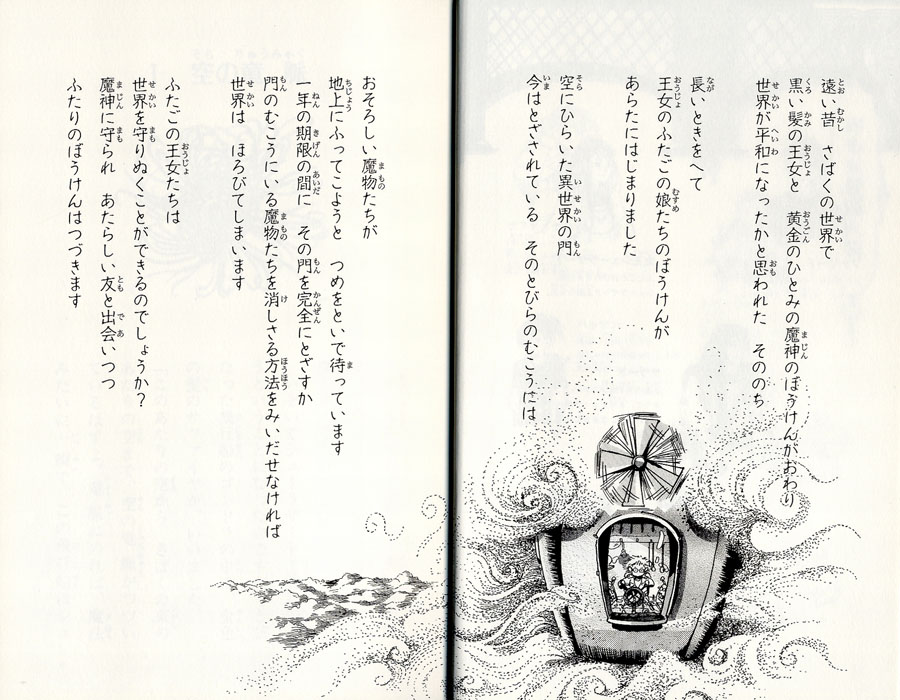 遠い昔　さばくの世界で
黒い髪の王女と　黄金のひとみの魔神のぼうけんがおわり
世界が平和になったかと思われた　そののち
長いときをへて
王女のふたごの娘たちのぼうけんが
あらたにはじまりました
空にひらいた異世界の門
今はとざされている　そのとびらのむこうには
おそろしい魔物たちが
地上にふってこようと　つめをといで待っています
一年の期限の間に　その門を完全にとざすか
門のむこうにいる魔物たちを消しさる方法をみいだせなければ
世界は　ほろびてしまいます
ふたごの王女たちは
世界を守りぬくことができるのでしょうか？
魔神に守られ　あたらしい友と出会いつつ
ふたりのぼうけんはつづきます